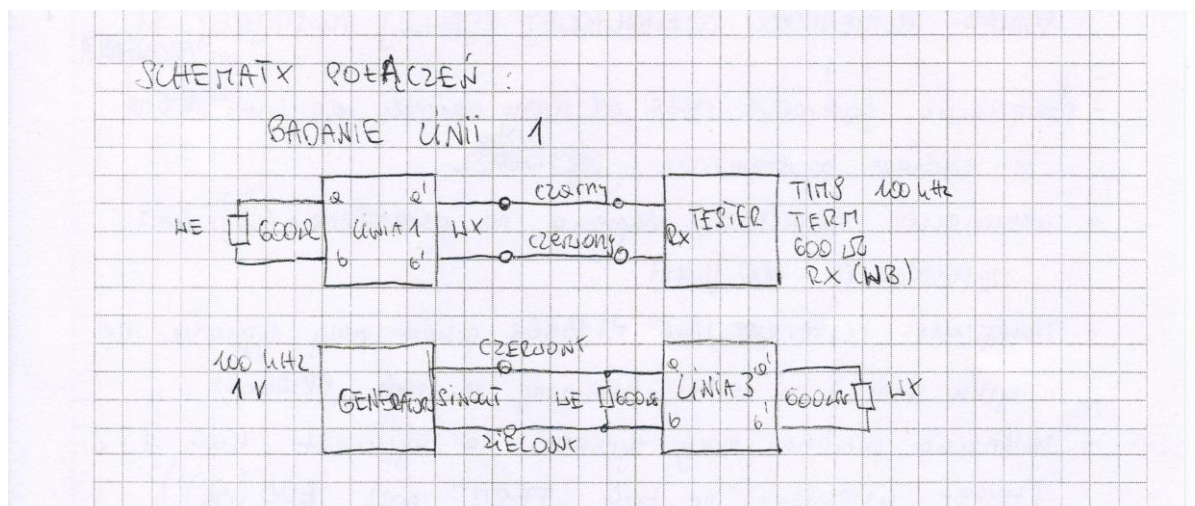 SCHEMATY POŁĄCZEŃ :
BADANIE LINII 1
WE 600Ω a b LINIA 1 a' b' WY czarny czerwony RX TESTER
TIMS 100 kHz
TERM
600 Ω
RX (WB)
100 kHz
1 V
GENERATOR SINOUT CZERWONY ZIELONY WE 600Ω a b LINIA 3 a' b' 600Ω WY